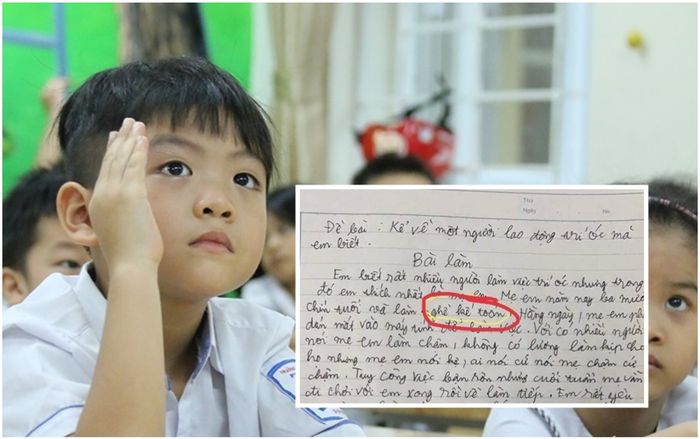 Thứ
Ngày No.
Đề bài : Kể về một người lao động trí óc mà
em biết.
Bài làm
Em biết rất nhiều người làm việc trí óc nhưng trong
đó em thích nhất là mẹ em. Mẹ em năm nay ba mươi
chín tuổi và làm nghề kế toán. Hằng ngày, mẹ em
dán mặt vào máy tính để làm việc. Với có nhiều người
nói mẹ em làm chậm, không có lương làm kịp cho
họ nhưng mẹ em mới kệ, ai nói cứ nói mẹ chậm cứ
chậm. Tuy công việc bận rộn nhưng cuối tuần mẹ vẫn
đi chơi với em xong rồi về làm tiếp. Em rất yêu